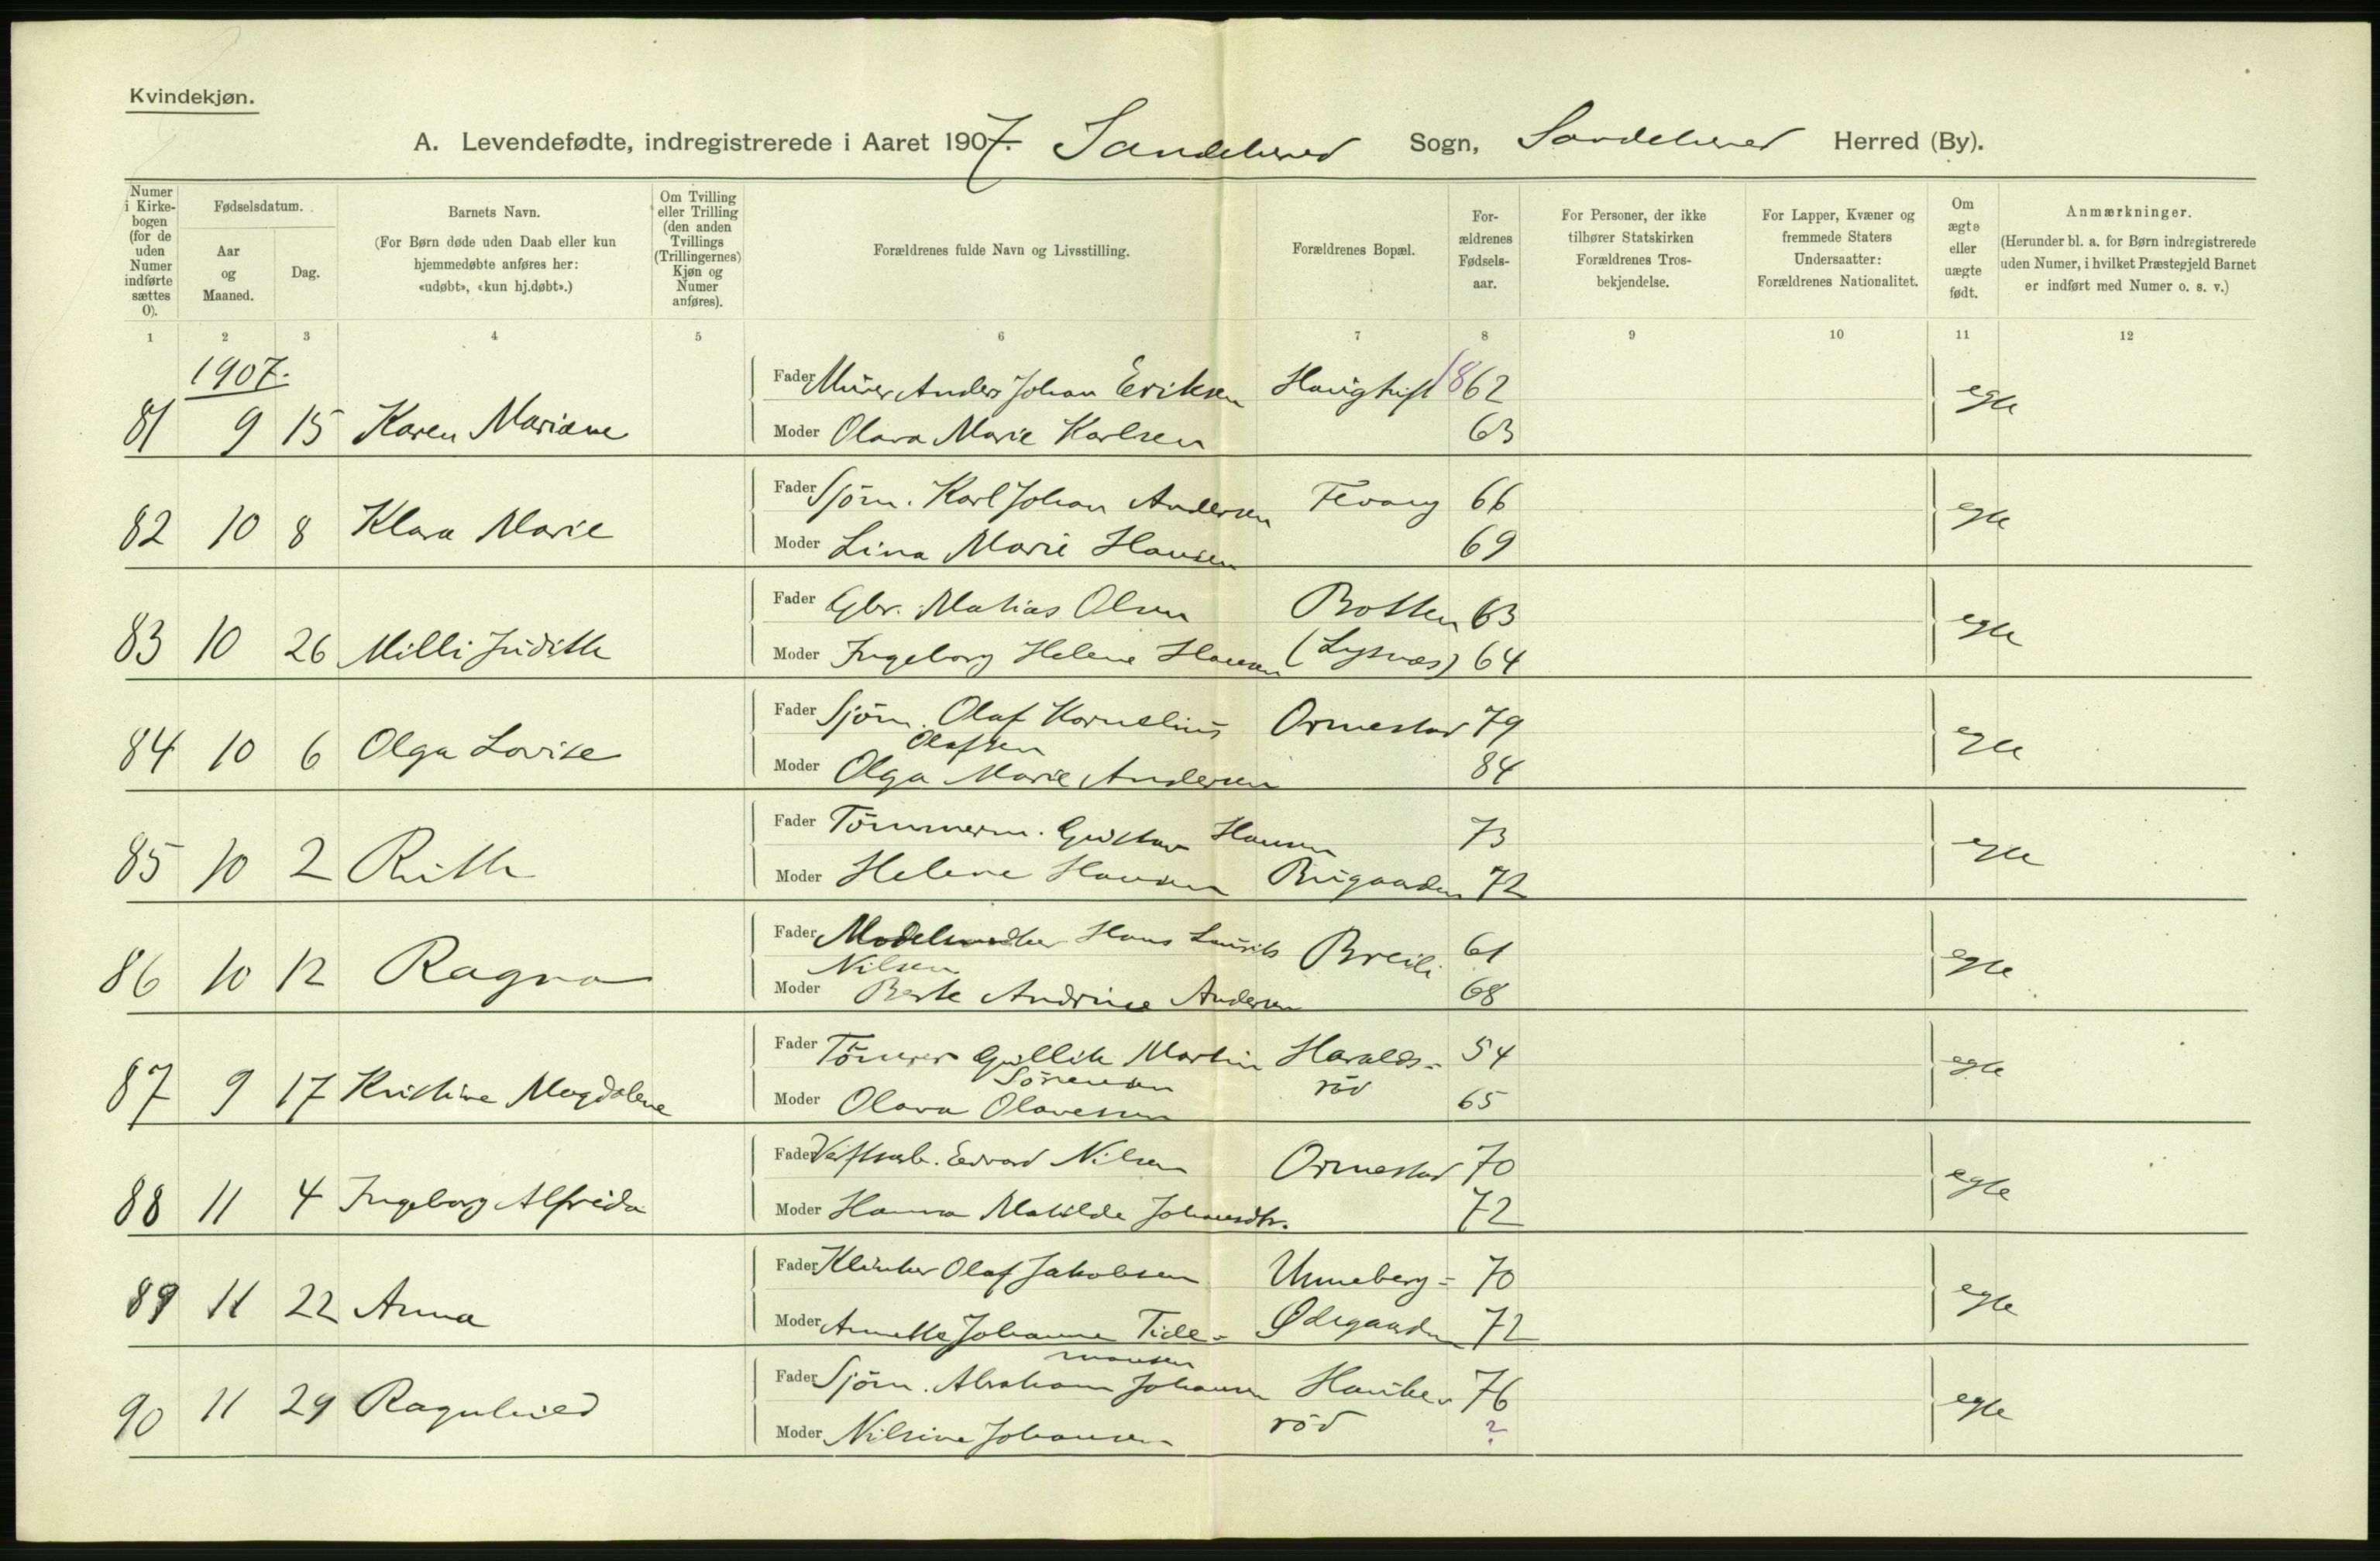 Kvindekjøn.
A. Levendefødte, indregistrerede i Aaret 1907. Sandeherred Sogn, Sandeherred Herred (By).
Numer i Kirke-bogen (for de uden Numer indførte sættes 0).
Fødselsdatum.
Aar og Maaned.
Dag.
Barnets Navn.
(For Børn døde uden Daab eller kun hjemmedøbte anføres her: «udøbt», «kun hj.døbt».)
Om Tvilling eller Trilling (den anden Tvillings (Trillingernes) Kjøn og Numer anføres).
Forældrenes fulde Navn og Livsstilling.
Forældrenes Bopæl.
For-ældrenes Fødsels-aar.
For Personer, der ikke tilhører Statskirken Forældrenes Tros-bekjendelse.
For Lapper, Kvæner og fremmede Staters Undersaatter: Forældrenes Nationalitet.
Om ægte eller uægte født.
Anmærkninger.
(Herunder bl. a. for Børn indregistrerede uden Numer, i hvilket Præstegjeld Barnet er indført med Numer o. s. v.)
1 2 3 4 5 6 7 8 9 10 11 12
1907.
Fader Murer Anders Johan Eriksen 1862
81 9 15 Karen Mariane egte
Moder Olava Marie Karlsen 63
Fader Sjöm. Karl Johan Andersen Fevang 66
82 10 8 Klara Marie egte
Moder Lina Marie Hansen 69
Fader Gbr. Matias Olsen Botten 63
83 10 26 Milli Judith egte
Moder Ingeborg Helene Hansen (Lysnæs) 64
Fader Sjöm. Olaf Kornelius Ormestad 79
Olafsen
84 10 6 Olga Lovise egte
Moder Olga Marie Andersen 84
Fader Tömmerm. Gustav Hansen 73
85 10 2 Ruth egte
Moder Helene Hansen Bugaarden 72
Fader Hans Laurits Breili 61
Nilsen
86 10 12 Ragna egte
Moder Berte Andrine Andersen 68
Fader Tömrer Gullik Martin Haralds- 54
Sörensen röd
87 9 17 Kristine Magdalene egte
Moder Olava Olavesen 65
Fader Verftsarb. Edvard Nilsen Ormestad 70
88 11 4 Ingeborg Alfrida egte
Moder Hanna Matilde Johansdtr. 72
Fader Klinker Olaf Jakobsen Unneberg- 70
89 11 22 Anna egte
Moder Annette Johanne Tide- Ødegaarden 72
mansen
Fader Sjöm. Abraham Johansen Hauke- 76
90 11 29 Ragnhild egte
Moder Nilsine Johansen röd ?